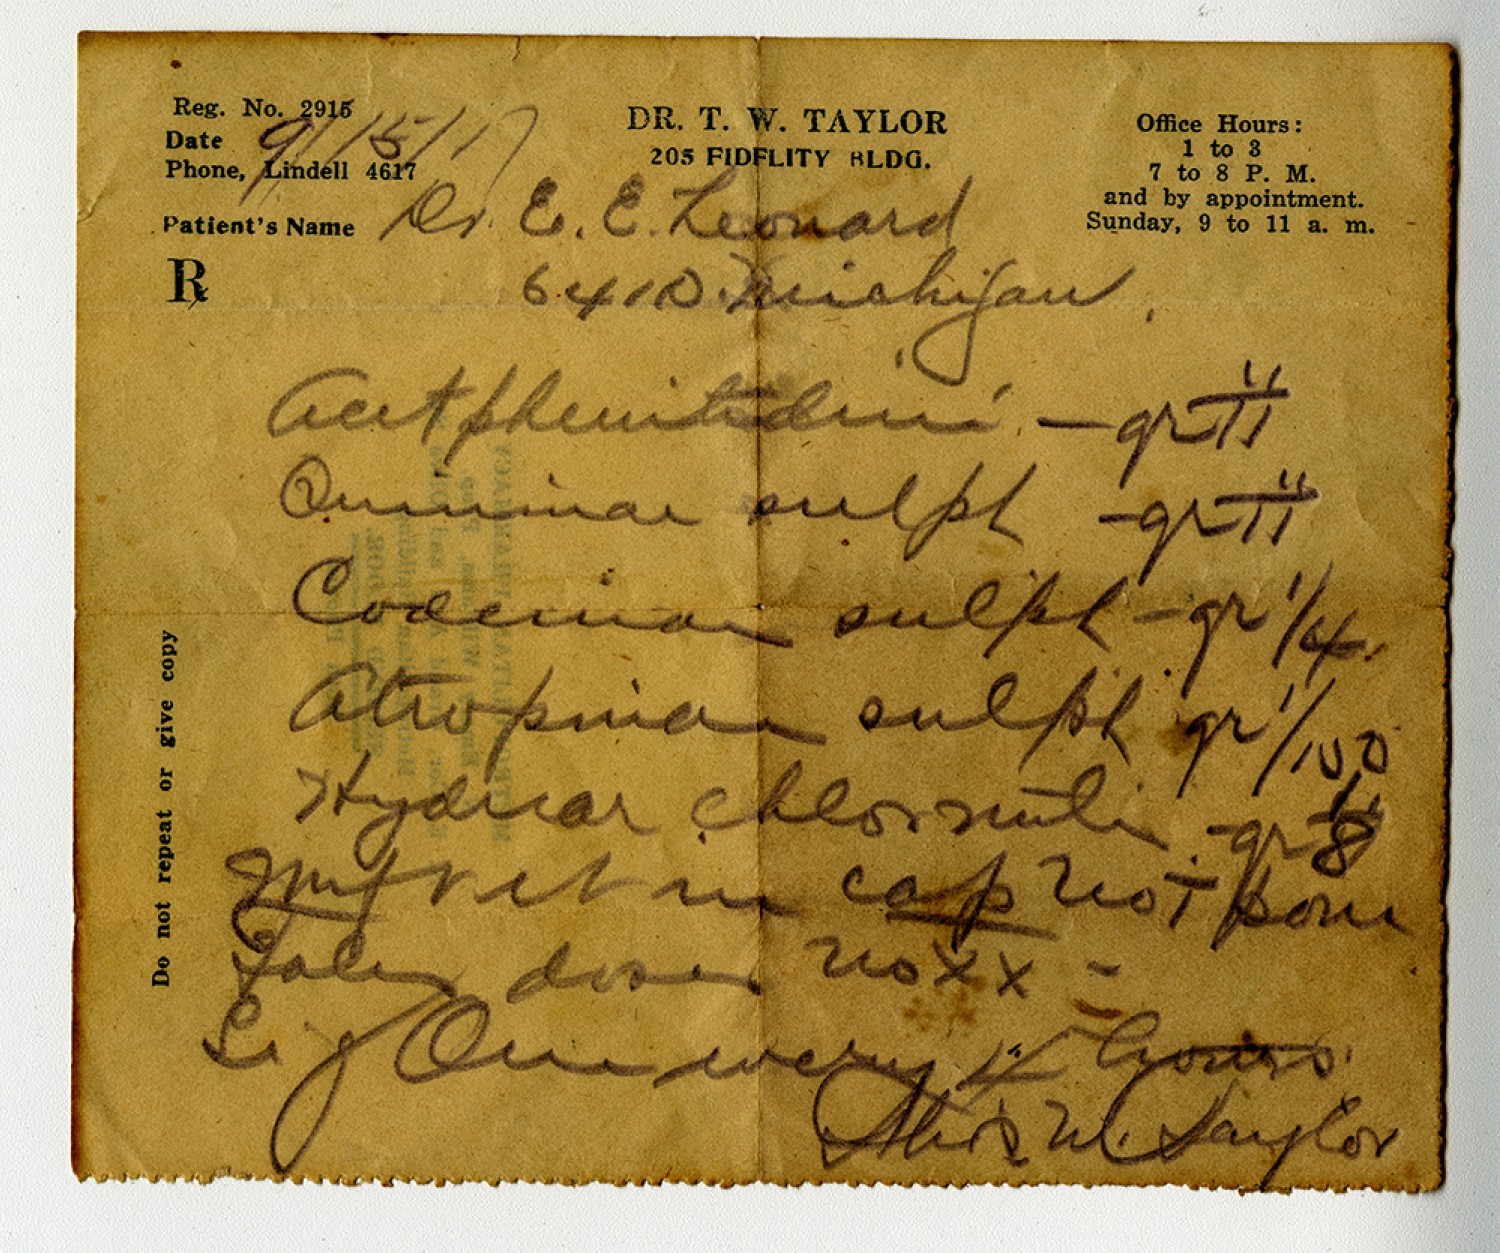 Reg. No. 2915
Date 9/15/17
Phone, Lindell 4617
DR. T. W. TAYLOR
205 FIDELITY BLDG.
Office Hours:
1 to 3
7 to 8 P. M.
and by appointment.
Sunday, 9 to 11 a. m.
Patient's Name Dr. E. E. Leonard
6410 Michigan
℞
Acetphenitidini - gr ii
Quininae sulph - gr ii
Codeinae sulph - gr 1/4
Atropinae sulph gr 1/100
Hydrar chlor miti - gr 1/8
M ft et in cap No i pone
Tales doses No xx -
Sig One every 4 hours
Thos W. Taylor
Do not repeat or give copy